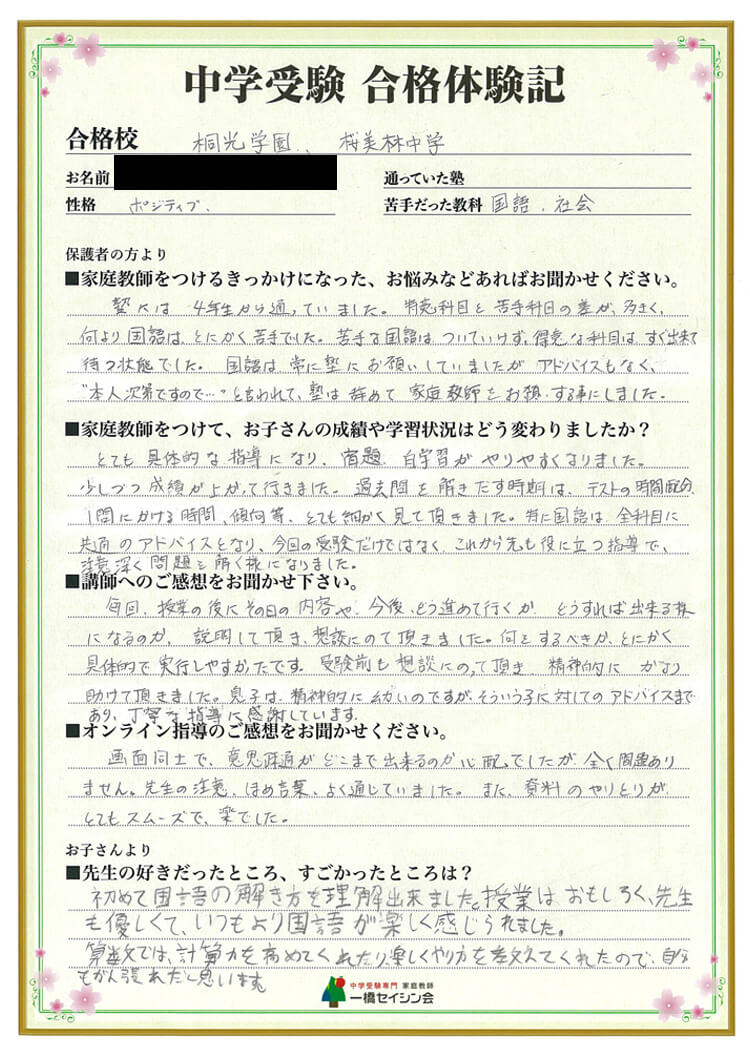 中学受験 合格体験記
合格校 桐光学園、桜美林中学
お名前
通っていた塾
性格 ポジティブ、
苦手だった教科 国語、社会
保護者の方より
■家庭教師をつけるきっかけになった、お悩みなどあればお聞かせください。
塾へは 4年生から通っていました。得意科目と苦手科目の差が、多きく、
何より国語は、とにかく苦手でした。苦手な国語は、ついていけず、得意な科目は、すぐ出来て
待つ状態でした。 国語は常に塾にお願いしていましたが アドバイスもなく、
"本人次第ですので…"と言われて、塾は辞めて 家庭教師をお願いする事にしました。
■家庭教師をつけて、お子さんの成績や学習状況はどう変わりましたか？
とても 具体的な指導になり、宿題、自学習が やりやすくなりました。
少しづつ成績が上がって行きました。過去問を解きだす時期は、テストの時間配分、
1問にかける時間、傾向等、とても細かく見て頂きました。特に国語は、全科目に
共通のアドバイスとなり、今回の受験だけではなく、これから先も役に立つ指導で、
注意深く問題を解く様になりました。
■講師へのご感想をお聞かせ下さい。
毎回、授業の後にその日の内容や、今後、どう進めて行くか どうすれば出来る様
になるのか、 説明して頂き、相談にのて頂きました。何をするべきか、とにかく
具体的で実行しやすかったです。受験前も相談にのって頂き 精神的に かなり
助けて頂きました。息子は、精神的に幼いのですが、そういう子に対してのアドバイスまで
あり、丁寧な指導に感謝しています。
■オンライン指導のご感想をお聞かせください。
画面同士で、意思疎通がどこまで出来るのか心配でしたが、全く問題あり
ません。先生の注意、ほめ言葉、よく通じていました。また、資料のやりとりが
とてもスムーズで、楽でした。
お子さんより
■先生の好きだったところ、すごかったところは？
初めて国語の解き方を理解出来ました。授業はおもしろく、先生
も優しくて、いつもより国語が楽しく感じられました。
算数では、計算力を高めてくれたり、楽しくやり方を教えてくれたので、自分
もがん張れたと思います。
中学受験専門 家庭教師
一橋セイシン会